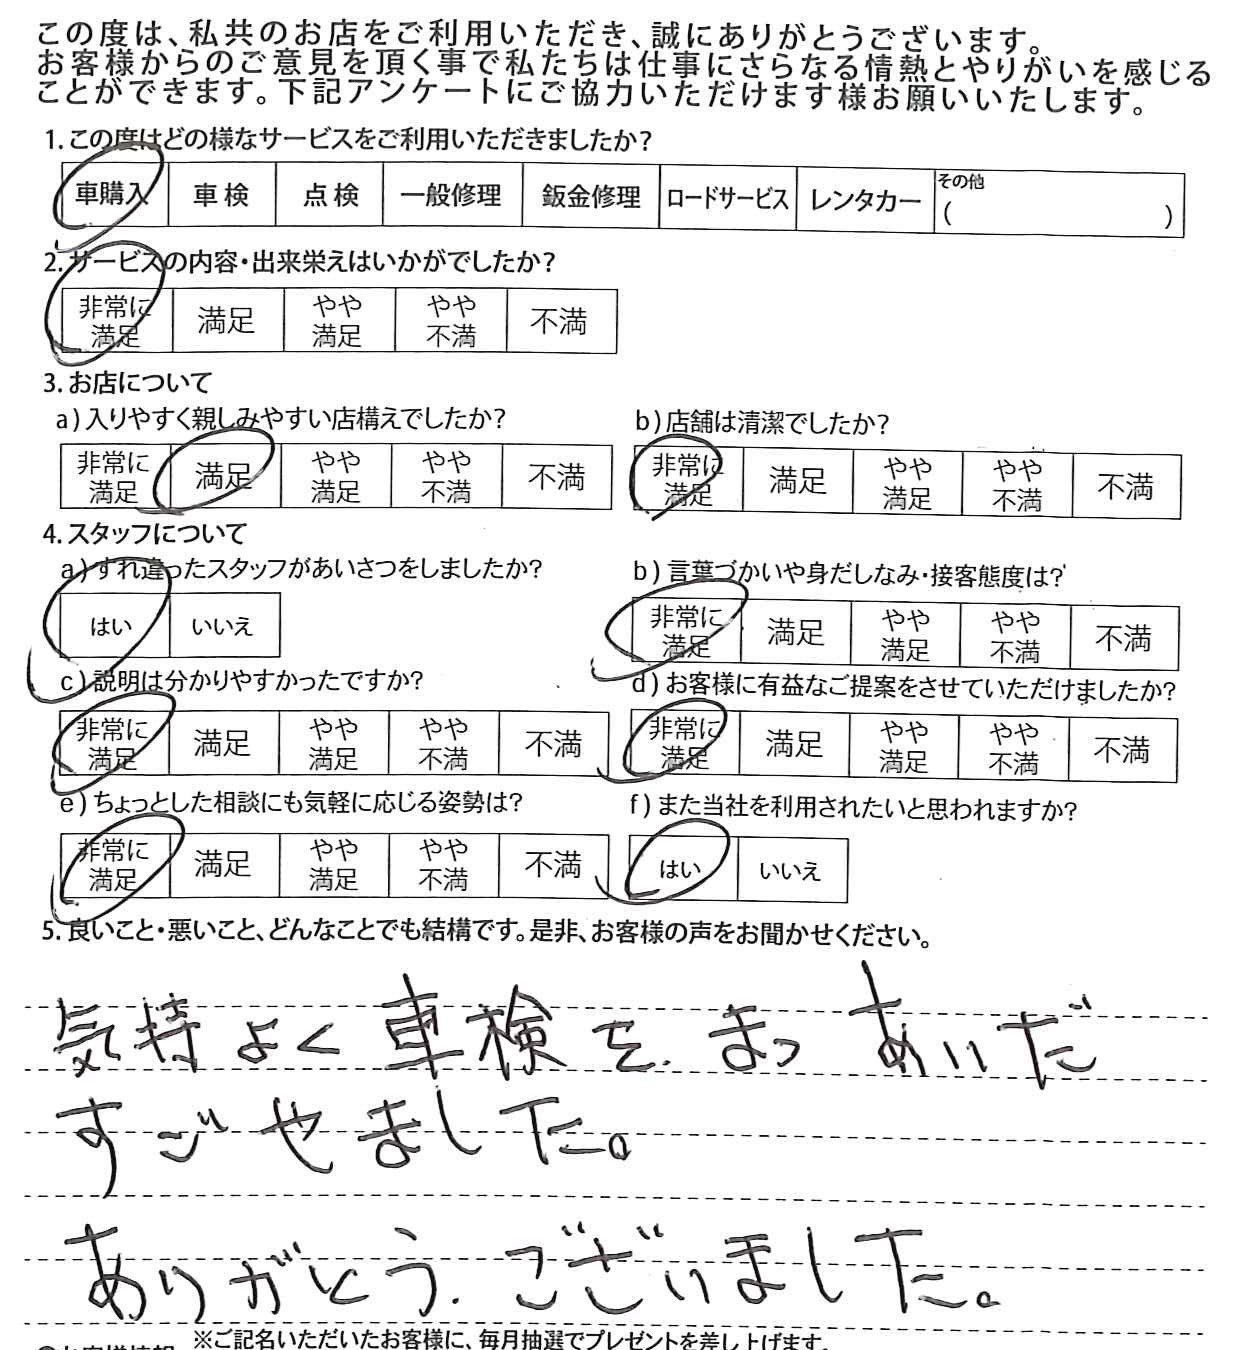 この度は、私共のお店をご利用いただき、誠にありがとうございます。
お客様からのご意見を頂く事で私たちは仕事にさらなる情熱とやりがいを感じる
ことができます。下記アンケートにご協力いただけます様お願いいたします。
1.この度はどの様なサービスをご利用いただきましたか?
車購入 車検 点検 一般修理 鈑金修理 ロードサービス レンタカー その他 ( )
2.サービスの内容・出来栄えはいかがでしたか?
非常に満足 満足 やや満足 やや不満 不満
3.お店について
a)入りやすく親しみやすい店構えでしたか? b)店舗は清潔でしたか?
非常に満足 満足 やや満足 やや不満 不満 非常に満足 満足 やや満足 やや不満 不満
4.スタッフについて
a)すれ違ったスタッフがあいさつをしましたか? b)言葉づかいや身だしなみ・接客態度は?
はい いいえ 非常に満足 満足 やや満足 やや不満 不満
c)説明は分かりやすかったですか? d)お客様に有益なご提案をさせていただけましたか?
非常に満足 満足 やや満足 やや不満 不満 非常に満足 満足 やや満足 やや不満 不満
e)ちょっとした相談にも気軽に応じる姿勢は? f)また当社を利用されたいと思われますか?
非常に満足 満足 やや満足 やや不満 不満 はい いいえ
5.良いこと・悪いこと、どんなことでも結構です。是非、お客様の声をお聞かせください。
気持よく車検を.まつあいだ
すごせました。
ありがとう.ございました。
※ご記名いただいたお客様に、毎月抽選でプレゼントを差し上げます。